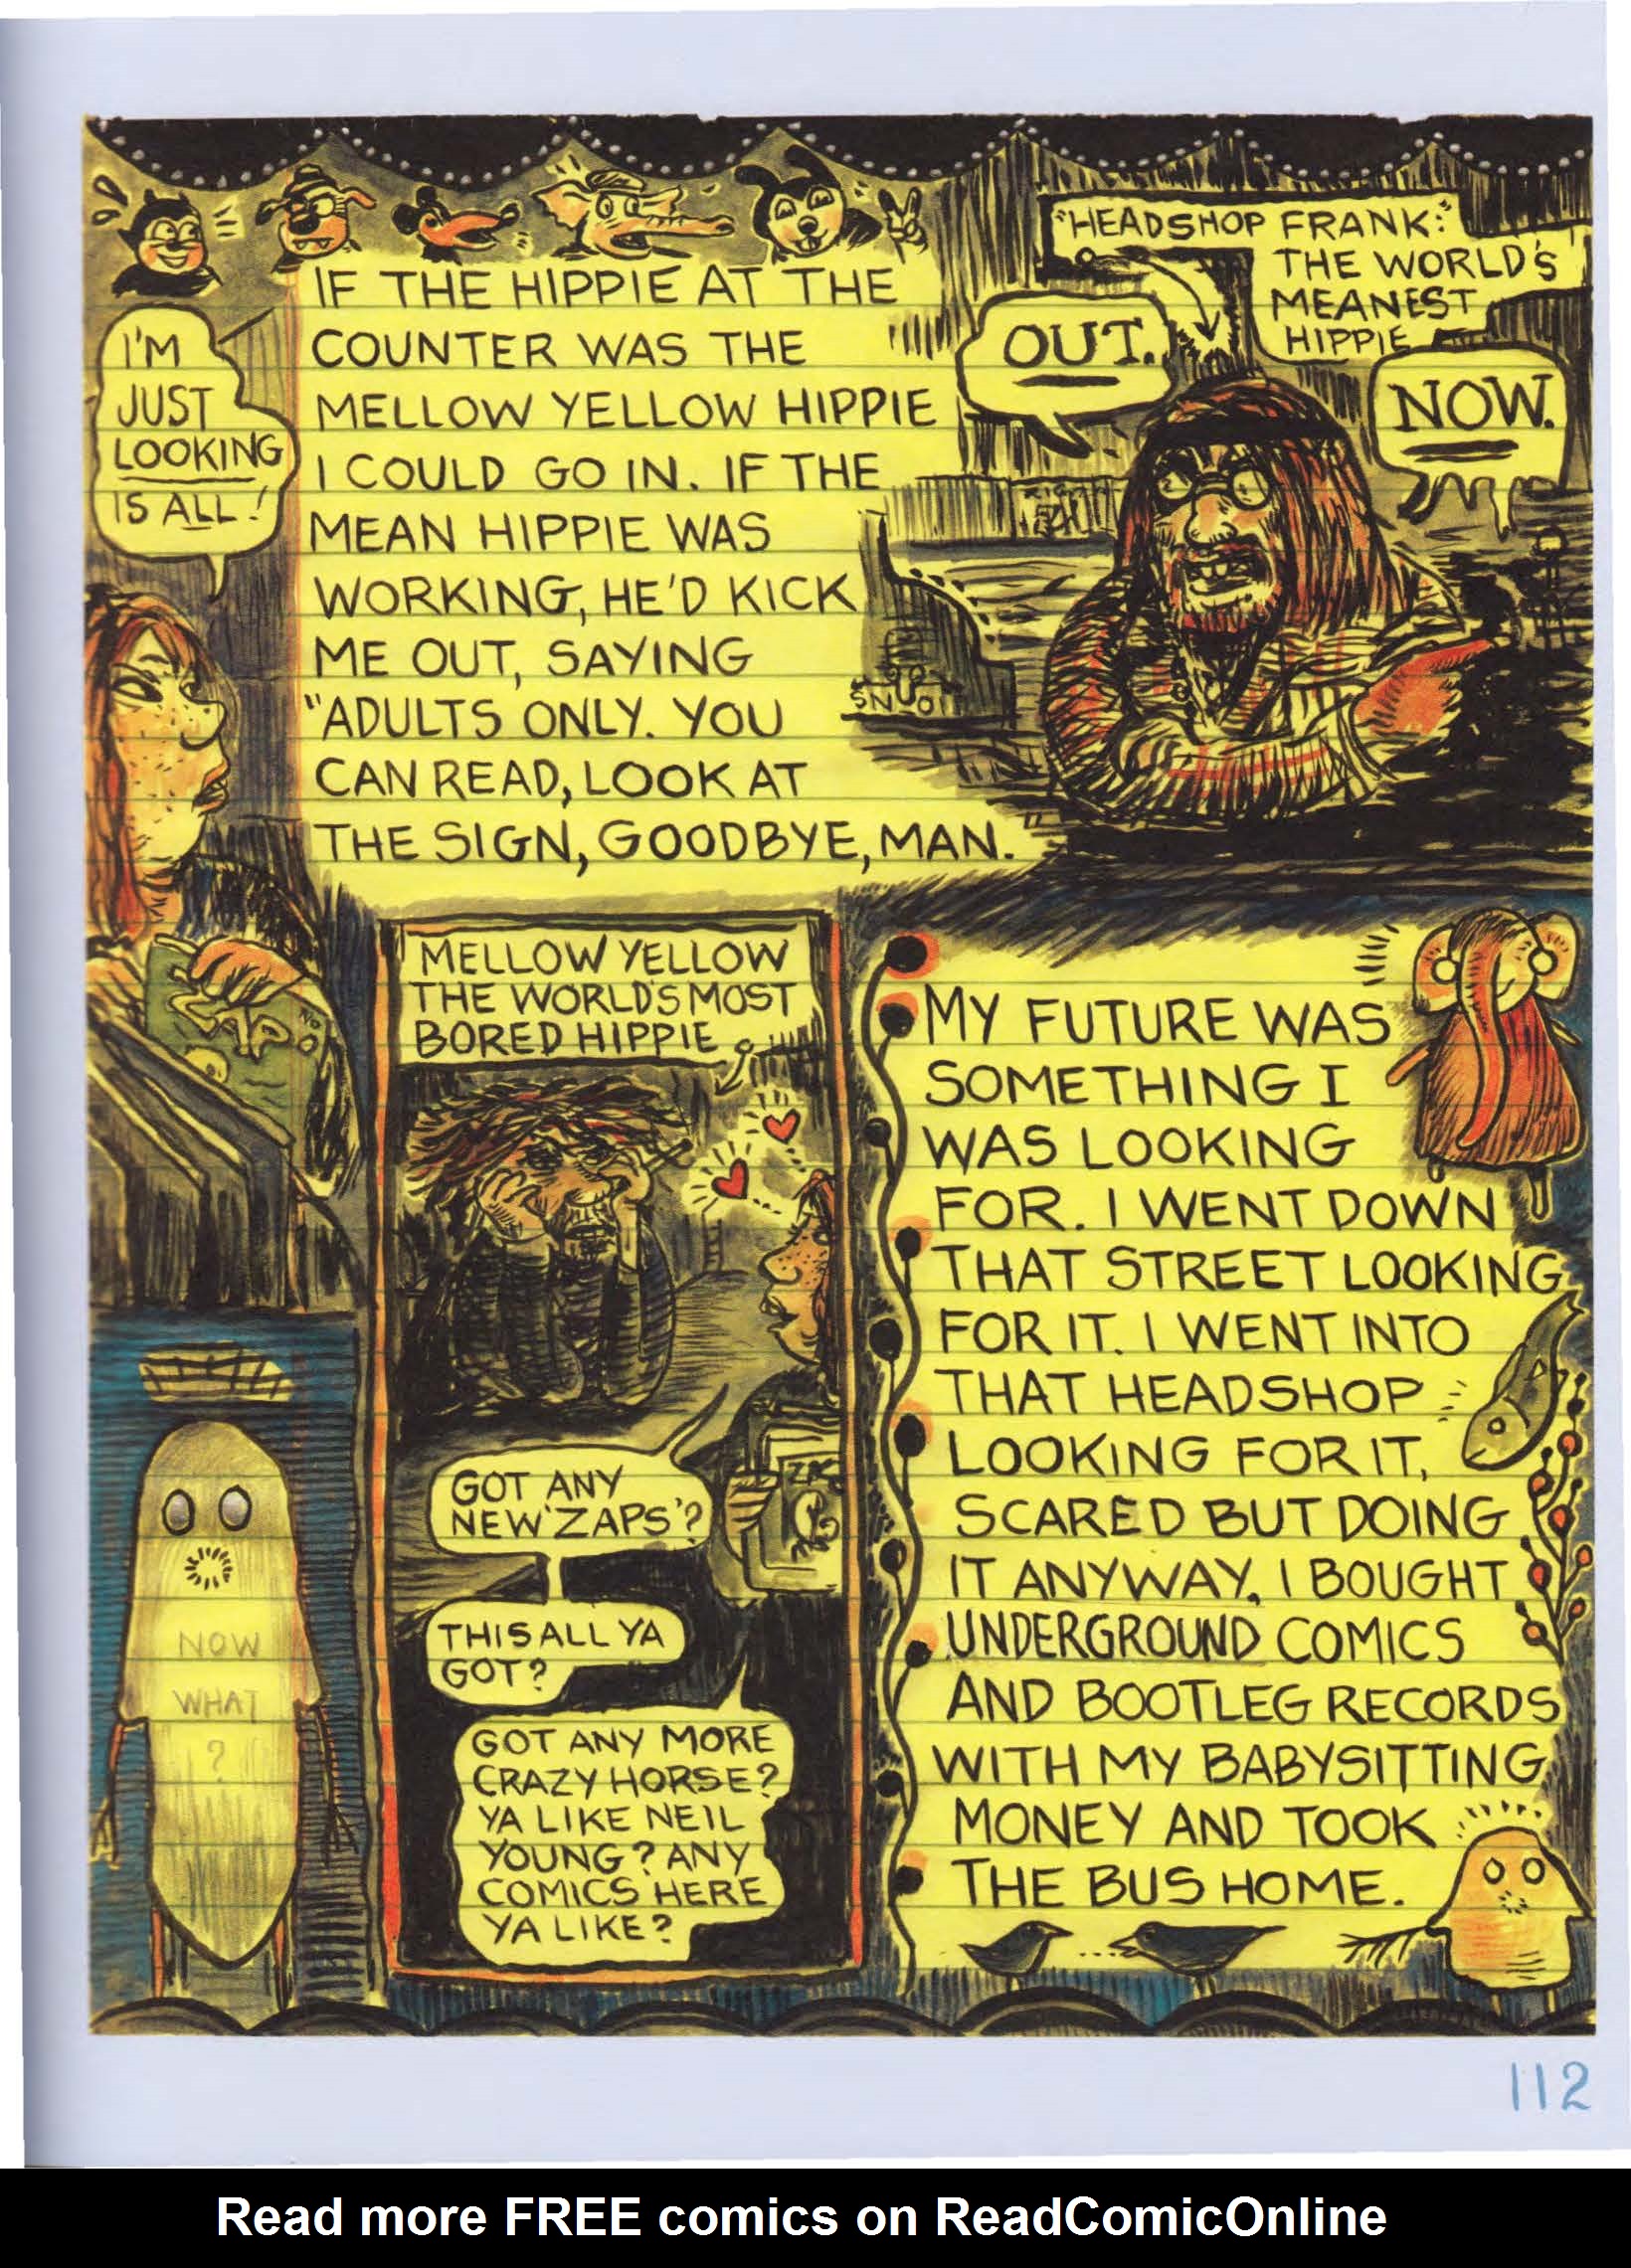 I'M
JUST
LOOKING
IS ALL!
IF THE HIPPIE AT THE
COUNTER WAS THE
MELLOW YELLOW HIPPIE
I COULD GO IN. IF THE
MEAN HIPPIE WAS
WORKING, HE'D KICK
ME OUT, SAYING
"ADULTS ONLY. YOU
CAN READ, LOOK AT
THE SIGN, GOODBYE, MAN."
"HEADSHOP FRANK:"
THE WORLD'S
MEANEST
HIPPIE
OUT.
NOW.
MELLOW YELLOW
THE WORLD'S MOST
BORED HIPPIE
GOT ANY
NEW 'ZAPS'?
THIS ALL YA
GOT?
GOT ANY MORE
CRAZY HORSE?
YA LIKE NEIL
YOUNG? ANY
COMICS HERE
YA LIKE?
NOW
WHAT
?
MY FUTURE WAS
SOMETHING I
WAS LOOKING
FOR. I WENT DOWN
THAT STREET LOOKING
FOR IT. I WENT INTO
THAT HEADSHOP
LOOKING FOR IT,
SCARED BUT DOING
IT ANYWAY, I BOUGHT
UNDERGROUND COMICS
AND BOOTLEG RECORDS
WITH MY BABYSITTING
MONEY AND TOOK
THE BUS HOME.
112
Read more FREE comics on ReadComicOnline